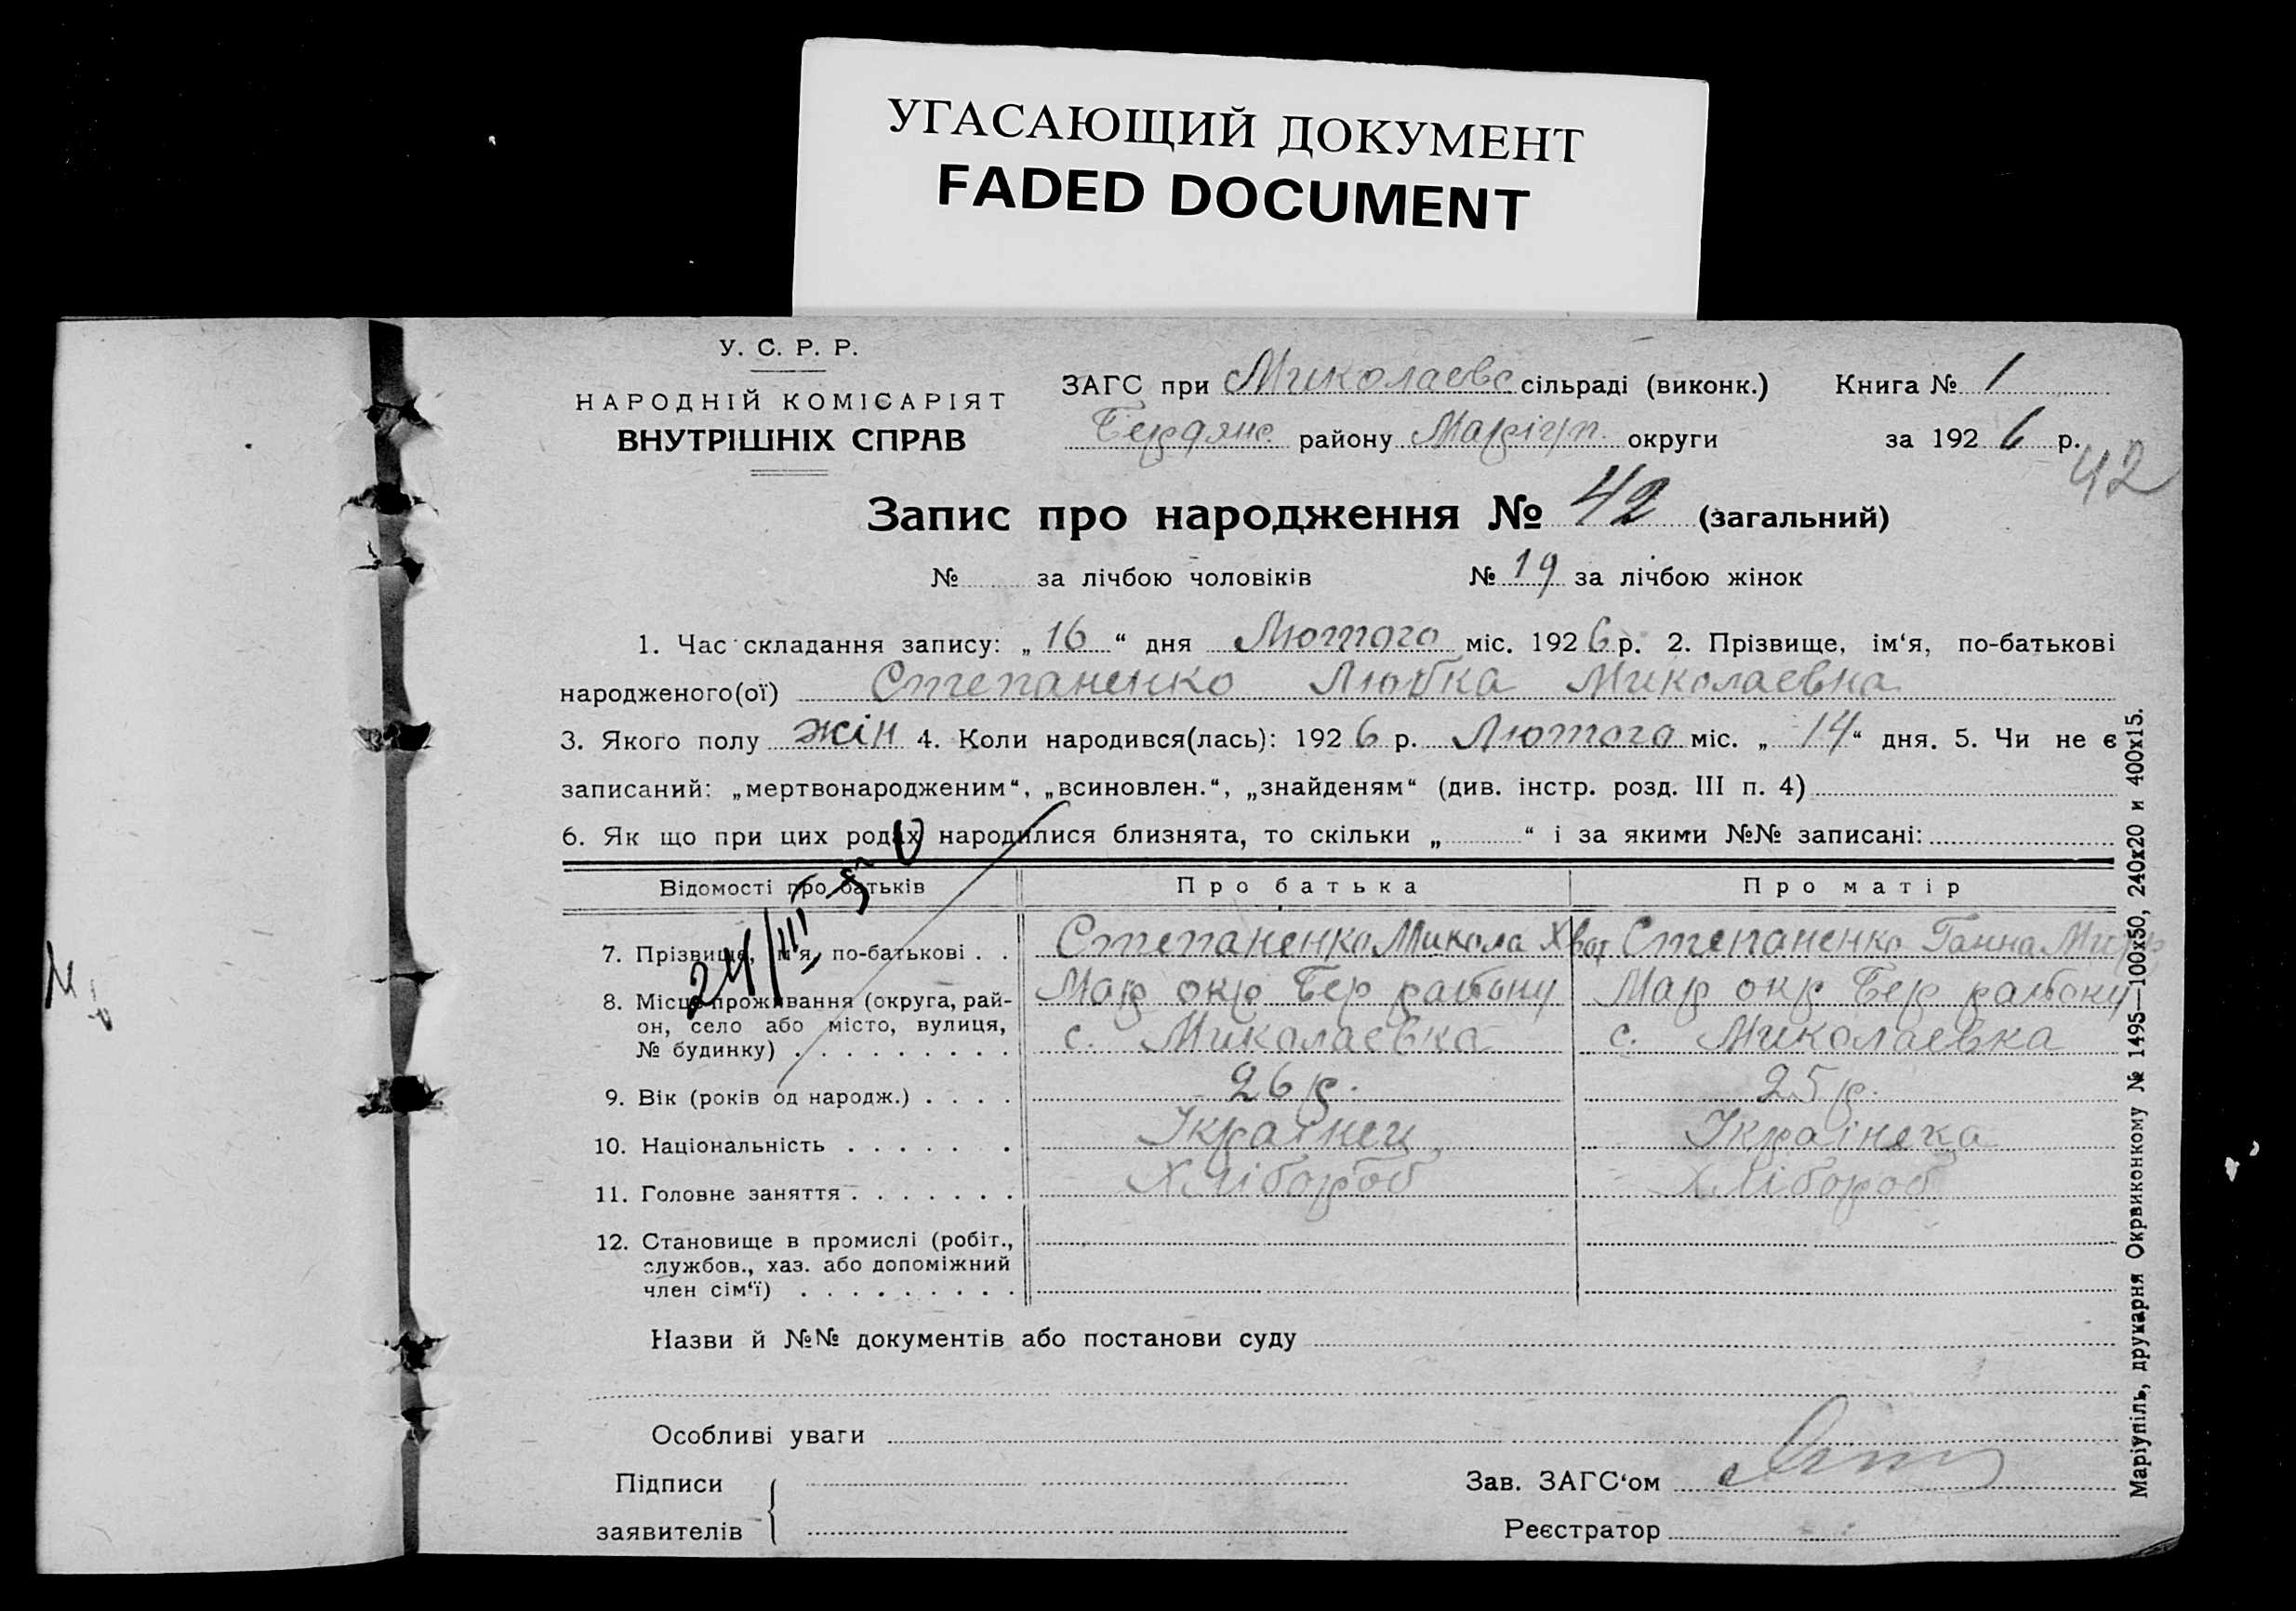 УГАСАЮЩИЙ ДОКУМЕНТ
FADED DOCUMENT
У. С. Р. Р.
НАРОДНІЙ КОМІСАРІЯТ
ВНУТРІШНІХ СПРАВ
ЗАГС при Миколаевс сільраді (виконк.) Книга № 1
Бердянс. району Маріуп. округи за 1926 р.
42
Запис про народження № 42 (загальний)
№ за лічбою чоловіків № 19 за лічбою жінок
1. Час складання запису: „16“ дня Лютого міс. 1926 р. 2. Прізвище, ім‘я, по-батькові
народженого(ої) Степаненко Любка Миколаевна
3. Якого полу жін 4. Коли народився(лась): 1926 р. Лютого міс. „14“ дня. 5. Чи не є
записаний: „мертвонародженим“, „всиновлен.“, „знайденям“ (див. інстр. розд. III п. 4)
6. Як що при цих родах народилися близнята, то скільки „ “ і за якими №№ записані:
Відомості про батьків Про батька Про матір
7. Прізвище, ім‘я, по-батькові . . Степаненко Микола Степаненко Ганна
24/III
8. Місце проживання (округа, рай- Мар окр Бер району Мар окр Бер району
он, село або місто, вулиця, с. Миколаевка с. Миколаевка
№ будинку) . . . . . . . . .
9. Вік (років од народж.) . . . . 26 р. 25 р.
10. Національність . . . . . . Українец Українка
11. Головне заняття . . . . . . . Хлібороб Хлібороб
12. Становище в промислі (робіт.,
службов., хаз. або допоміжний
член сім‘ї) . . . . . . . . .
Назви й №№ документів або постанови суду
Особливі уваги
Підписи Зав. ЗАГС‘ом
заявителів Реєстратор
Маріупіль, друкарня Окрвиконкому № 1495—100х50, 240х20 и 400х15.